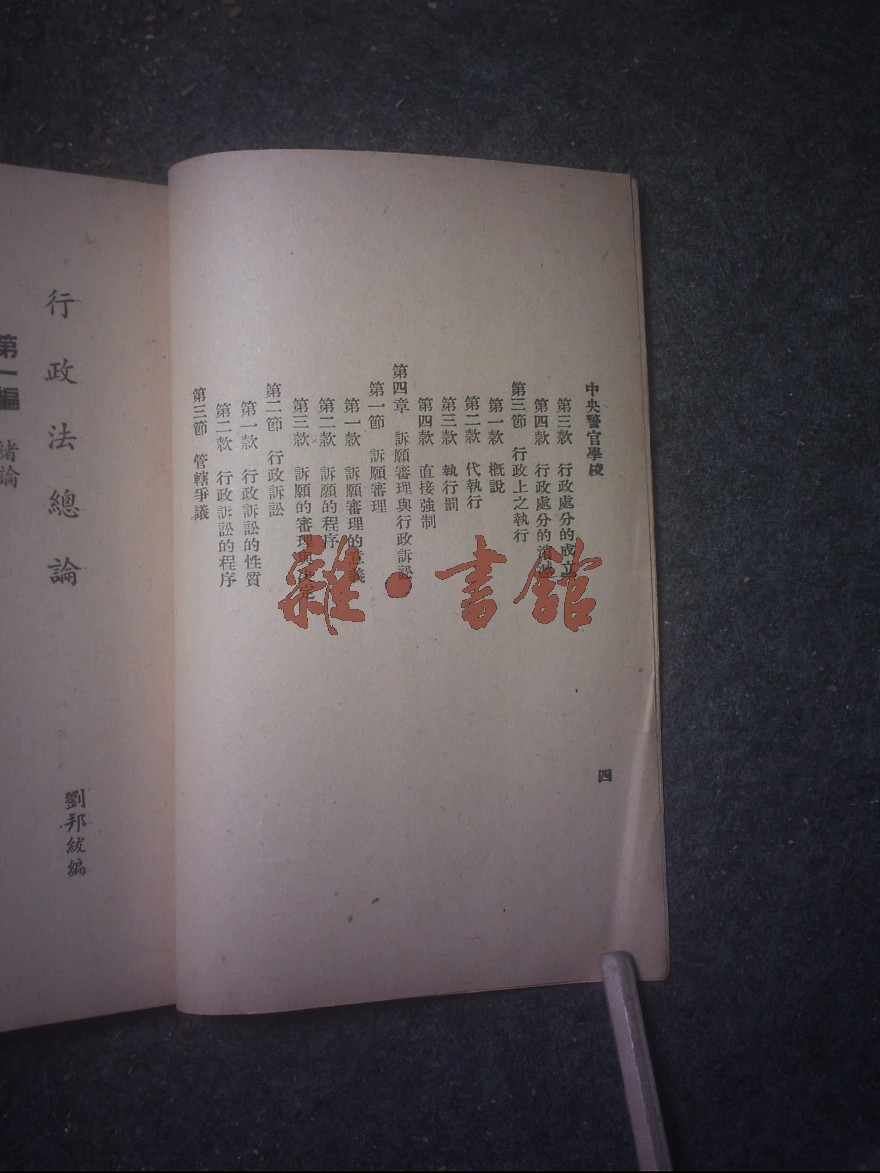 中央警官學校
第三款 行政處分的成立
第四款 行政處分的消滅
第三節 行政上之執行
第一款 概說
第二款 代執行
第三款 執行罰
第四款 直接強制
第四章 訴願審理與行政訴訟
第一節 訴願審理
第一款 訴願審理的意義
第二款 訴願的程序
第三款 訴願的審理與決定
第二節 行政訴訟
第一款 行政訴訟的性質
第二款 行政訴訟的程序
第三節 管轄爭議
四
雜·書館
行政法總論
劉邦紱編
第一編 緒論